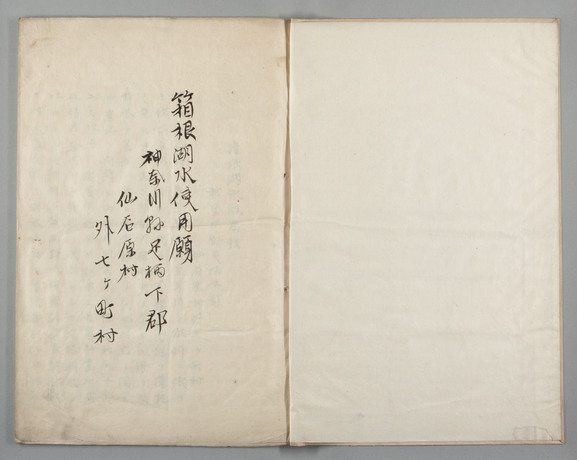 箱根湖水使用願
神奈川縣足柄下郡
仙石原村
外七ヶ町村